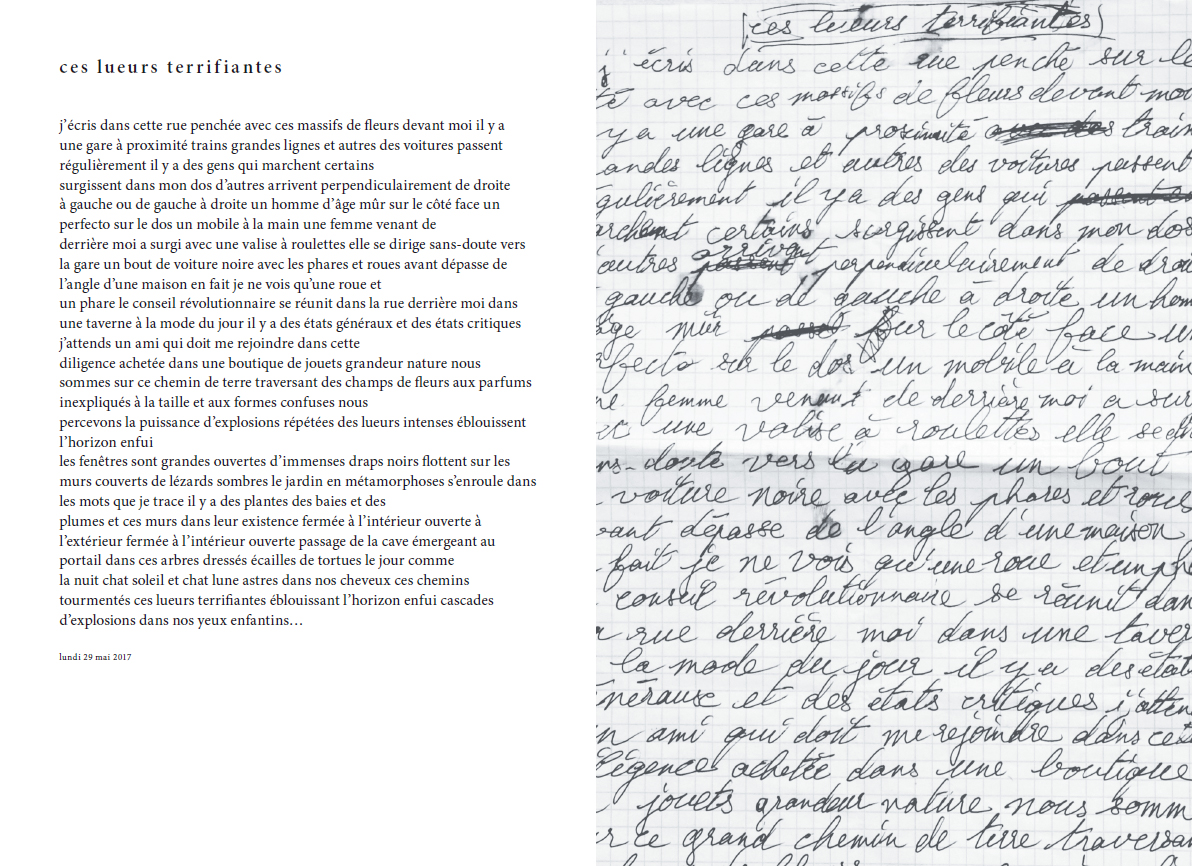 ces lueurs terrifiantes
j’écris dans cette rue penchée avec ces massifs de fleurs devant moi il y a
une gare à proximité trains grandes lignes et autres des voitures passent
régulièrement il y a des gens qui marchent certains
surgissent dans mon dos d’autres arrivent perpendiculairement de droite
à gauche ou de gauche à droite un homme d’âge mûr sur le côté face un
perfecto sur le dos un mobile à la main une femme venant de
derrière moi a surgi avec une valise à roulettes elle se dirige sans-doute vers
la gare un bout de voiture noire avec les phares et roues avant dépasse de
l’angle d’une maison en fait je ne vois qu’une roue et
un phare le conseil révolutionnaire se réunit dans la rue derrière moi dans
une taverne à la mode du jour il y a des états généraux et des états critiques
j’attends un ami qui doit me rejoindre dans cette
diligence achetée dans une boutique de jouets grandeur nature nous
sommes sur ce chemin de terre traversant des champs de fleurs aux parfums
inexpliqués à la taille et aux formes confuses nous
percevons la puissance d’explosions répétées des lueurs intenses éblouissent
l’horizon enfui
les fenêtres sont grandes ouvertes d’immenses draps noirs flottent sur les
murs couverts de lézards sombres le jardin en métamorphoses s’enroule dans
les mots que je trace il y a des plantes des baies et des
plumes et ces murs dans leur existence fermée à l’intérieur ouverte à
l’extérieur fermée à l’intérieur ouverte passage de la cave émergeant au
portail dans ces arbres dressés écailles de tortues le jour comme
la nuit chat soleil et chat lune astres dans nos cheveux ces chemins
tourmentés ces lueurs terrifiantes éblouissant l’horizon enfui cascades
d’explosions dans nos yeux enfantins…
lundi 29 mai 2017
ces lueurs terrifiantes
j'écris dans cette rue penche sur le
té avec ces massifs de fleurs devant moi
y a une gare à proximité train
andes lignes et autres des voitures passent
gulièrement il y a des gens qui
archent certains surgissent dans mon dos
arrivent
autres perpendiculairement de droi
gauche ou de gauche à droite un hom
âge mûr sur le côté face un
rfecto sur le dos un mobile à la main
ne femme venant de derrière moi a sur
ec une valise à roulettes elle se diri
ns-doute vers la gare un bout
voiture noire avec les phares et roues
vant dépasse de l'angle d'une maison
fait je ne vois qu'une roue et un pha
conseil révolutionnaire se réunit dan
a rue derrière moi dans une taver
la mode du jour il y a des état
néraux et des états critiques j'atten
n ami qui doit me rejoindre dans cet
ligence achetée dans une boutique
jouets grandeur nature nous somm
r ce grand chemin de terre traversan